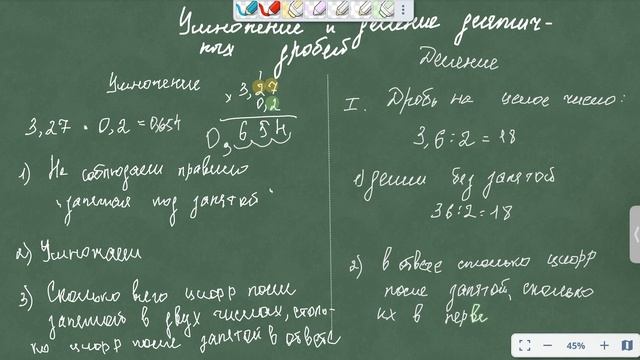 Умножение и деление десятич-
ных дробей
Умножение
3,27
× 0,2
0,654
3,27 · 0,2 = 0,654
1) Не соблюдаем правило
"запятая под запятой"
2) Умножаем
3) Сколько всего цифр после
запятой в двух числах, столь-
ко цифр после запятой в ответе
Деление
I. Дробь на целое число:
3,6 : 2 = 18
1) делим без запятой
36 : 2 = 18
2) в ответе столько цифр
после запятой, сколько
их в перв
45%